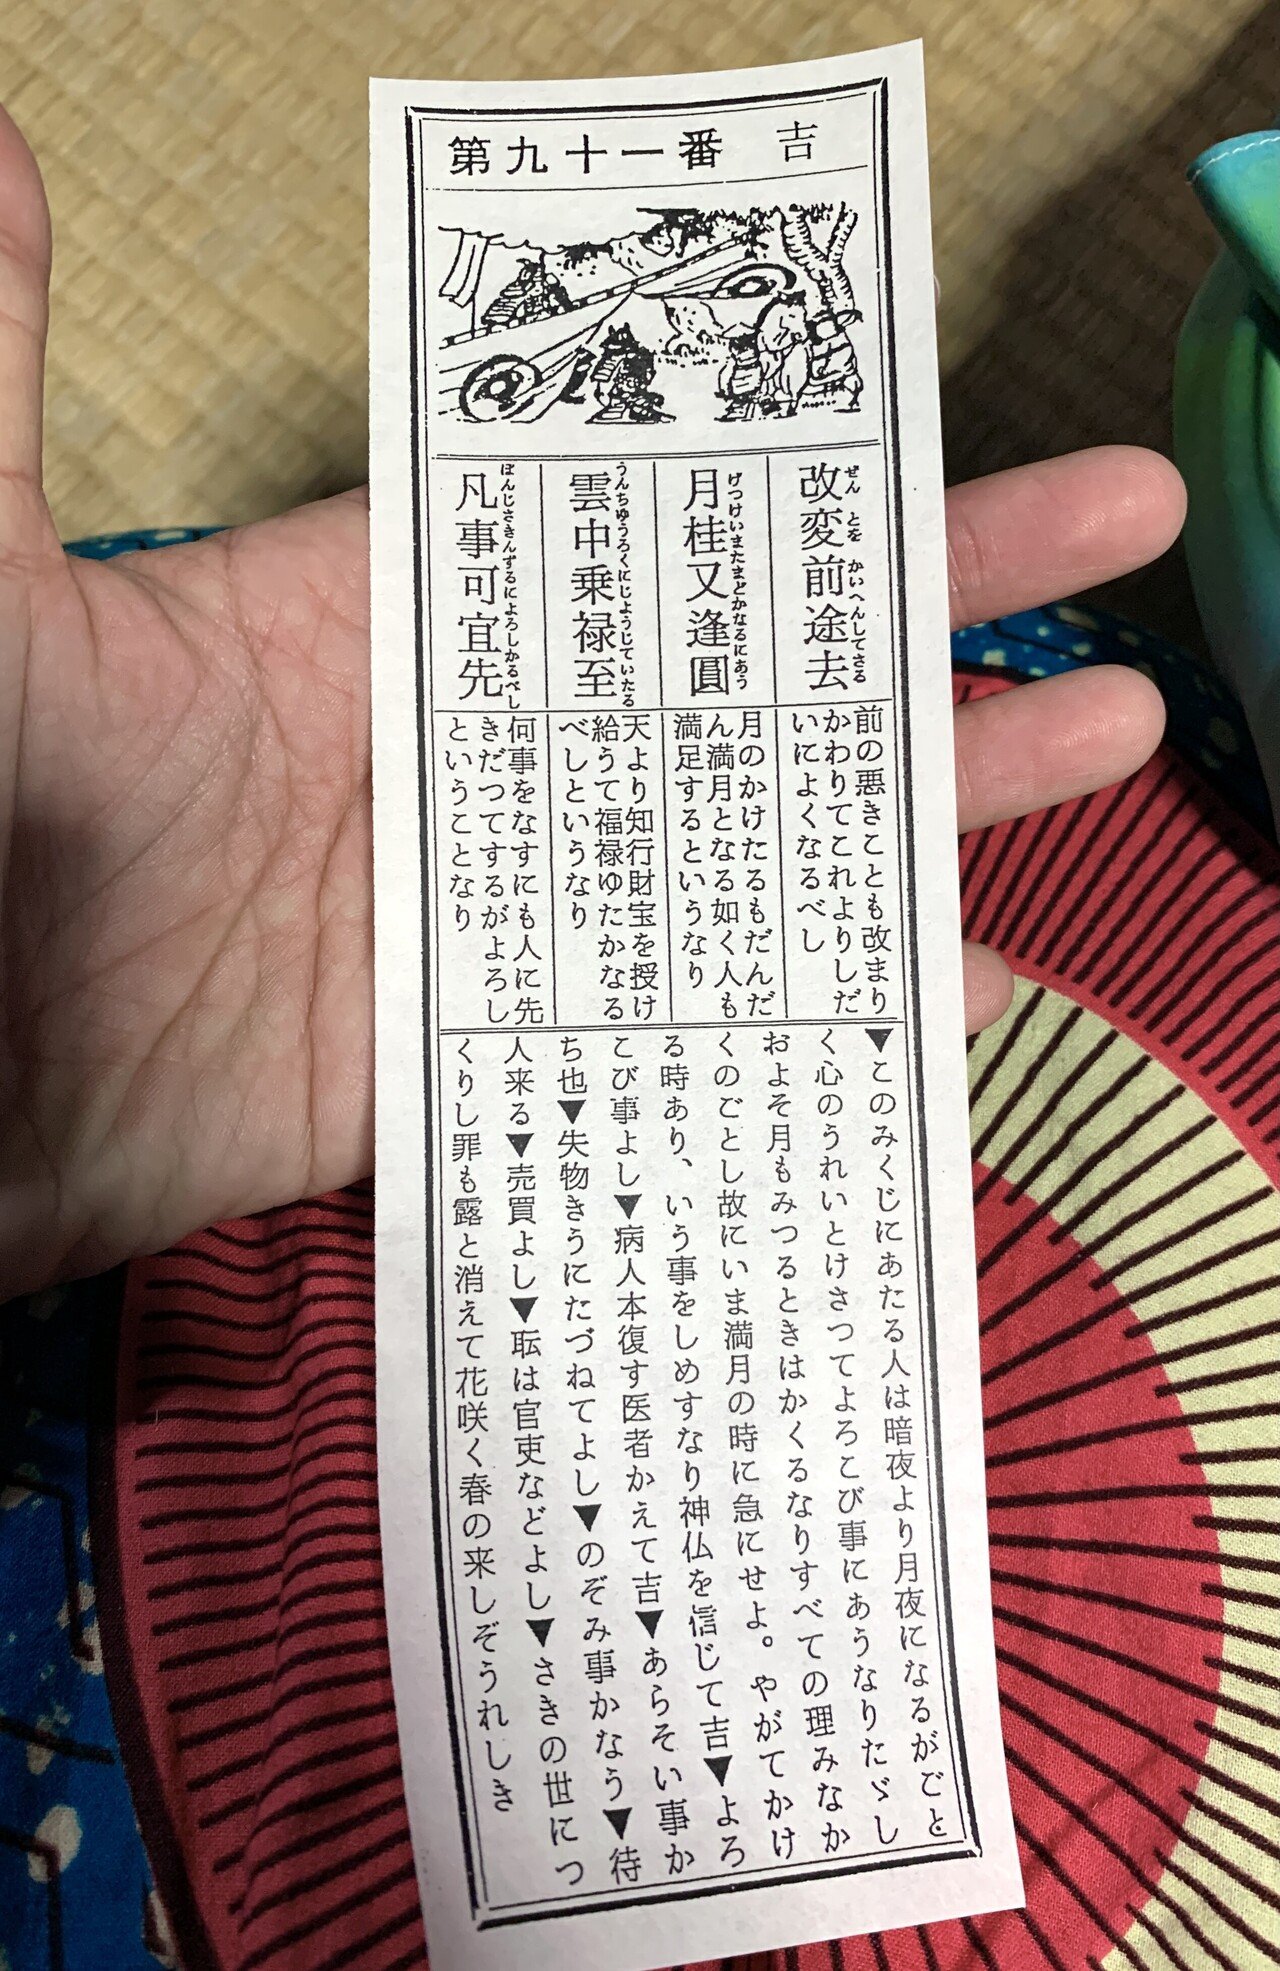 第九十一番 吉
改変前途去
ぜんとをかいへんしてさる
月桂又逢圓
げつけいまたまどかなるにあう
雲中乗禄至
うんちゆうろくにじようじていたる
凡事可宜先
ぼんじさきんずるによろしかるべし
前の悪きことも改まり
かわりてこれよりしだ
いによくなるべし
月のかけたるもだんだ
ん満月となる如く人も
満足するというなり
天より知行財宝を授け
給うて福禄ゆたかなる
べしというなり
何事をなすにも人に先
きだつてするがよろし
ということなり
▼このみくじにあたる人は暗夜より月夜になるがごと
く心のうれいとけさつてよろこび事にあうなりたゞし
およそ月もみつるときはかくるなりすべての理みなか
くのごとし故にいま満月の時に急にせよ。やがてかけ
る時あり、いう事をしめすなり神仏を信じて吉▼よろ
こび事よし▼病人本復す医者かえて吉▼あらそい事か
ち也▼失物きうにたづねてよし▼のぞみ事かなう▼待
人来る▼売買よし▼転は官吏などよし▼さきの世につ
くりし罪も露と消えて花咲く春の来しぞうれしき